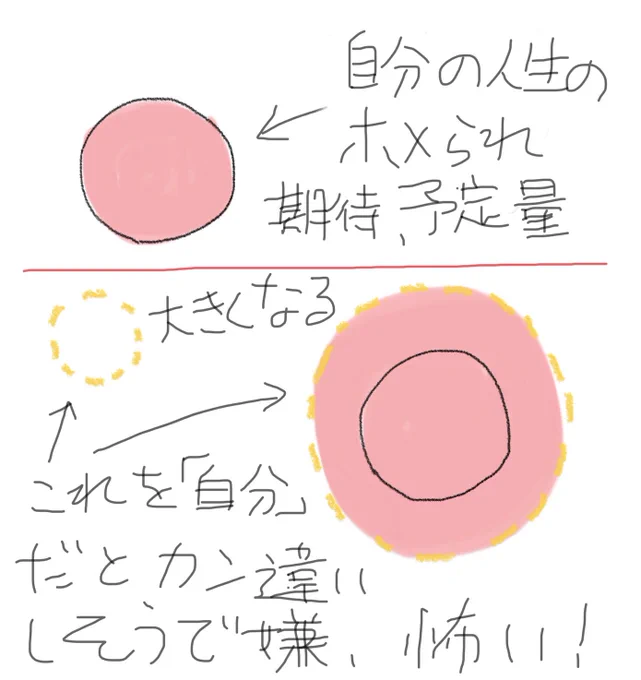 自分の人生の
ホメられ
期待、予定量
大きくなる
これを「自分」
だとカン違い
しそうで嫌、怖い!